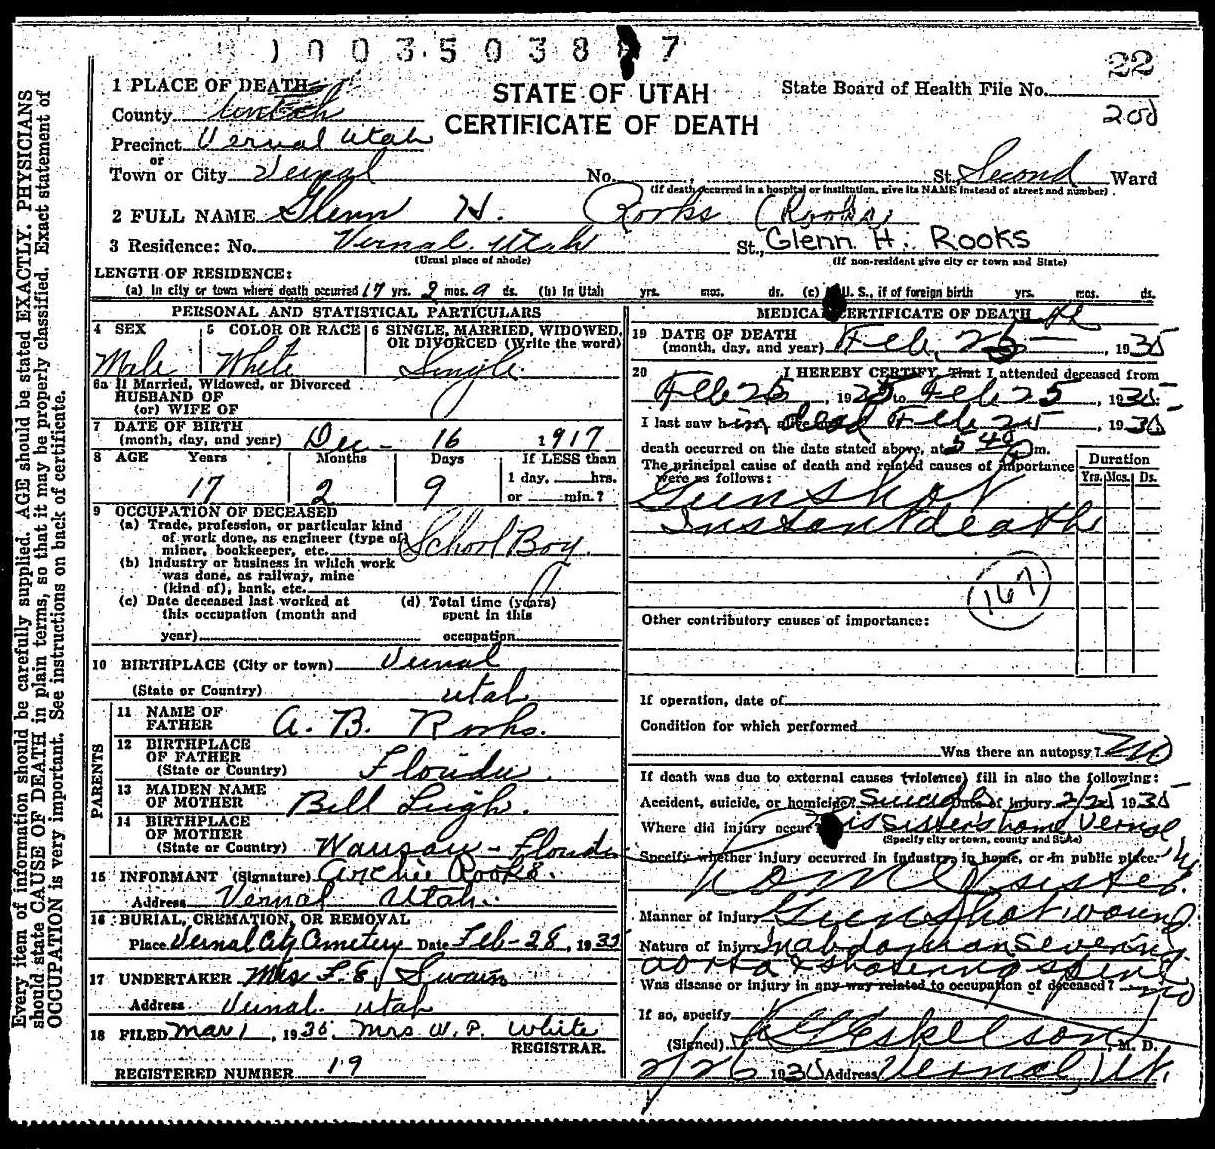 1003503847
22
STATE OF UTAH
CERTIFICATE OF DEATH
State Board of Health File No.
200
1 PLACE OF DEATH
County Uintah
Precinct Vernal Utah
or
Town or City Vernal No. St. Second Ward
(If death occurred in a hospital or institution, give its NAME instead of street and number)
2 FULL NAME Glenn H. Rooks (Rooks)
3 Residence: No. Vernal Utah St., Glenn H. Rooks
(Usual place of abode) (If non-resident give city or town and State)
LENGTH OF RESIDENCE:
(a) In city or town where death occurred 17 yrs. 2 mos. 9 ds. (b) In Utah yrs. mos. ds. (c) U. S., if of foreign birth yrs. mos. ds.
PERSONAL AND STATISTICAL PARTICULARS
4 SEX Male
5 COLOR OR RACE White
6 SINGLE, MARRIED, WIDOWED, OR DIVORCED (Write the word) Single
6a If Married, Widowed, or Divorced
HUSBAND OF
(or) WIFE OF
7 DATE OF BIRTH
(month, day, and year) Dec - 16 1917
8 AGE Years Months Days If LESS than
17 2 9 1 day, hrs.
or min.?
9 OCCUPATION OF DECEASED
(a) Trade, profession, or particular kind
of work done, as engineer (type of
miner, bookkeeper, etc. School Boy
(b) Industry or business in which work
was done, as railway, mine
(kind of), bank, etc.
(c) Date deceased last worked at
this occupation (month and
year)
(d) Total time (years)
spent in this
occupation
10 BIRTHPLACE (City or town) Vernal
(State or Country) Utah
PARENTS
11 NAME OF
FATHER A. B. Rooks.
12 BIRTHPLACE
OF FATHER
(State or Country) Florida
13 MAIDEN NAME
OF MOTHER Bell Leigh.
14 BIRTHPLACE
OF MOTHER
(State or Country) Wausau - Florida
15 INFORMANT (Signature) Archie Rooks.
Address Vernal Utah.
16 BURIAL, CREMATION, OR REMOVAL
Place Vernal City Cemetery Date Feb-28, 1935
17 UNDERTAKER Mrs F. E. Swain
Address Vernal. Utah
18 FILED Mar 1, 1935. Mrs. W. P. White
REGISTRAR.
REGISTERED NUMBER 19
MEDICAL CERTIFICATE OF DEATH
19 DATE OF DEATH
(month, day, and year) Feb. 25th, 1935
20 I HEREBY CERTIFY, That I attended deceased from
Feb 25, 1935 to Feb 25, 1935
I last saw him dead Feb 25, 1935
death occurred on the date stated above, at 5 40 Pm.
The principal cause of death and related causes of importance
were as follows:
Duration
Yrs. Mos. Ds.
Gunshot
Instant death
167
Other contributory causes of importance:
If operation, date of
Condition for which performed
Was there an autopsy? No
If death was due to external causes (violence) fill in also the following:
Accident, suicide, or homicide? Suicide Date of injury 2/25 1935
Where did injury occur? His Sister's home Vernal
(Specify city or town, county and State)
Specify whether injury occurred in industry, in home, or in public place.
home of sister.
Manner of injury Gunshot wound
Nature of injury In abdoman severing
aorta & shatering spine
Was disease or injury in any way related to occupation of deceased? No
If so, specify
(Signed) Eskelson, M. D.
2/26 1935 Address Vernal, Ut.
Every item of information should be carefully supplied. AGE should be stated EXACTLY. PHYSICIANS
should state CAUSE OF DEATH in plain terms, so that it may be properly classified. Exact statement of
OCCUPATION is very important. See instructions on back of certificate.